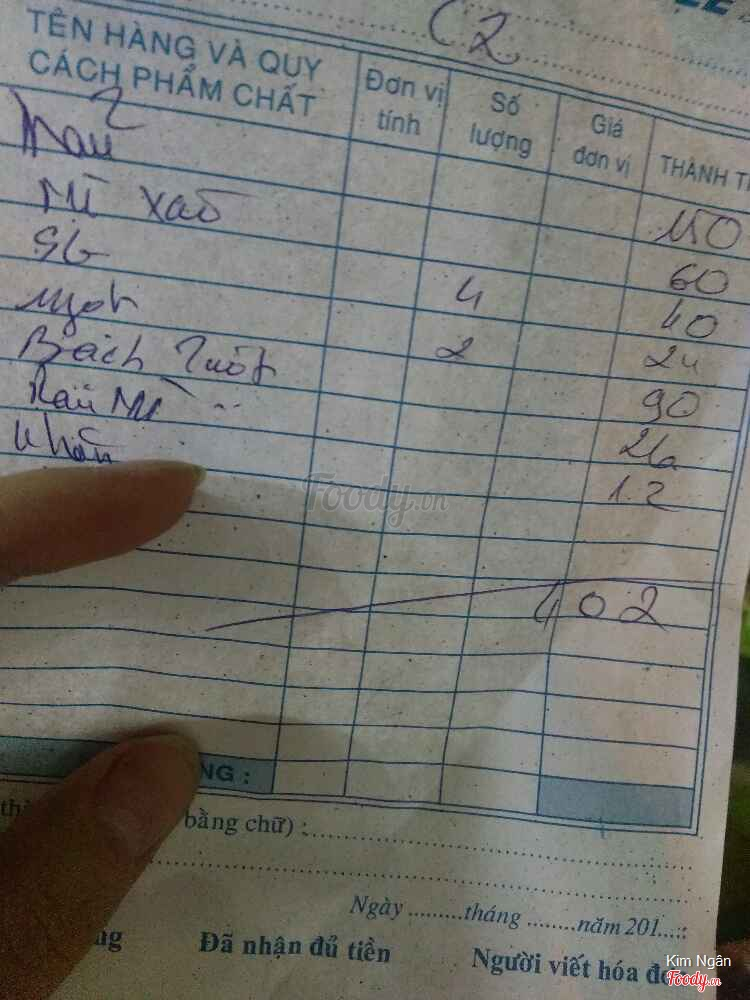 C2
TÊN HÀNG VÀ QUY CÁCH PHẨM CHẤT Đơn vị tính Số lượng Giá đơn vị THÀNH
150
Mì xào 60
SG 4 40
Ngọt 2 24
Bạch Tuột 90
Rau Mì 26
Khăn 12
402
NG :
bằng chữ) :
Ngày ........tháng ........năm 201.....
Đã nhận đủ tiền Người viết hóa đ
Foody.vn
Kim Ngân
Foody.vn